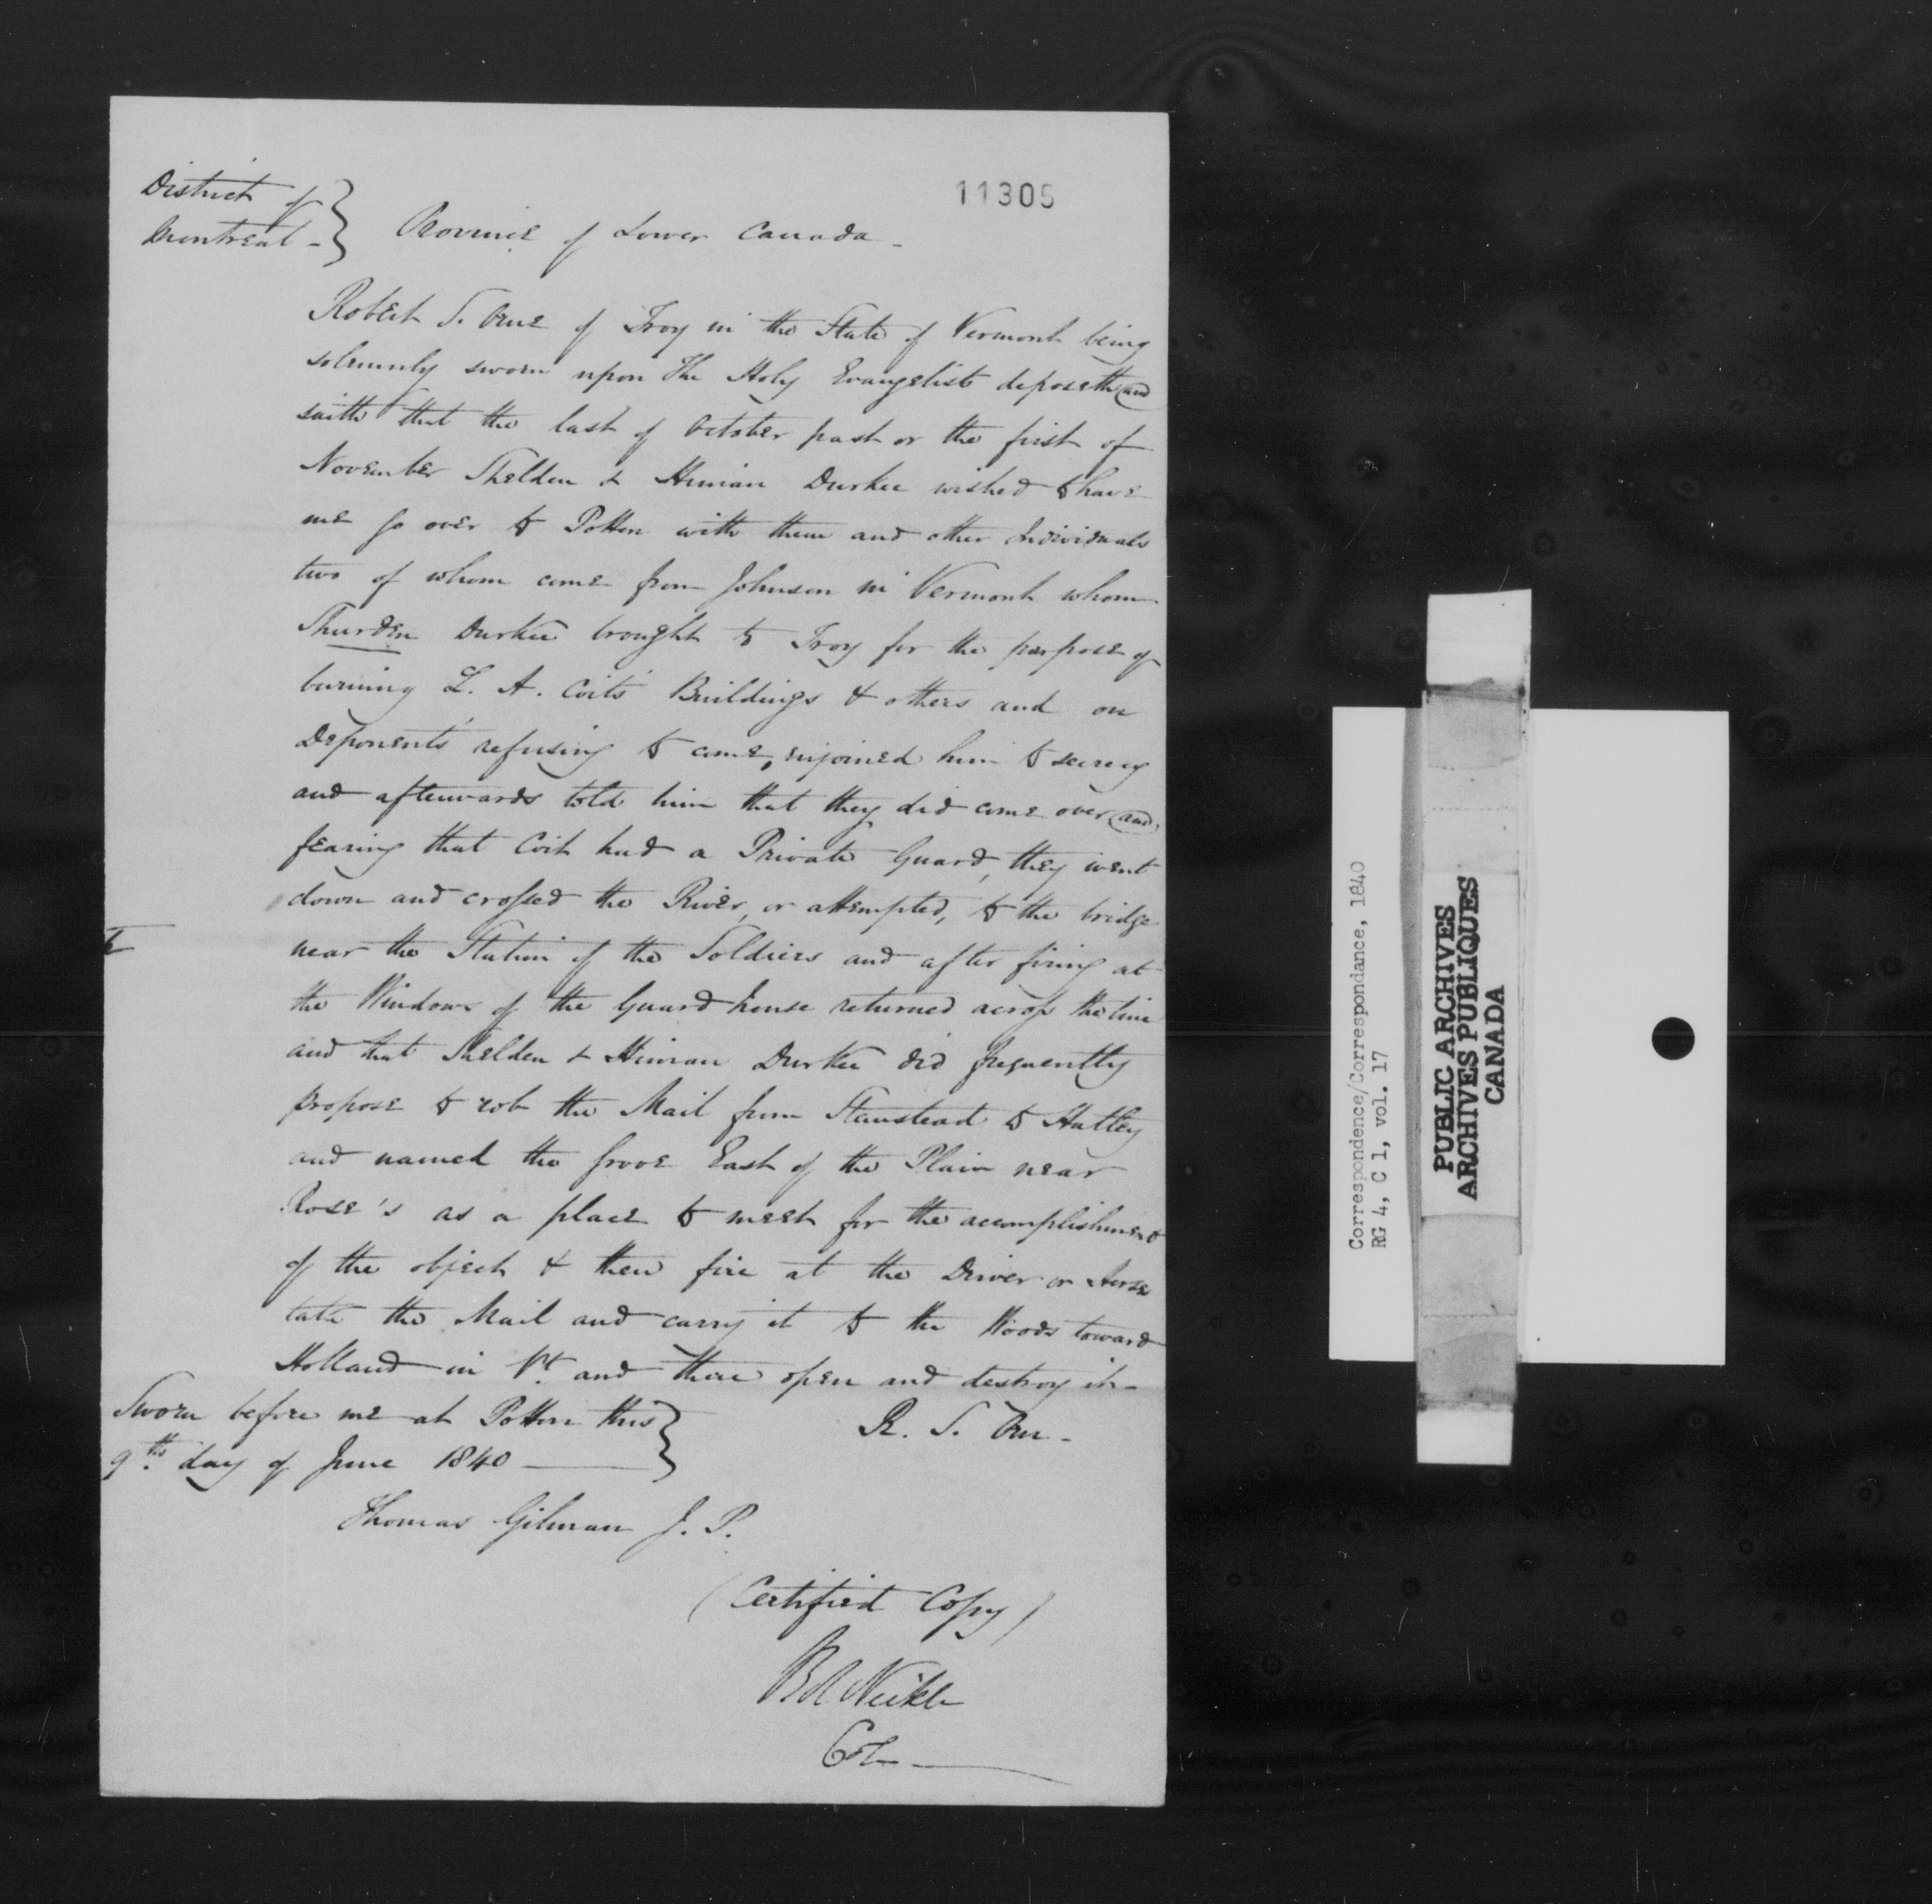 11305
District of
Montreal - } Province of Lower Canada -
Robert S. Orne of Troy in the State of Vermont being
solemnly sworn upon The Holy Evangelists deposeth and
saith that the last of October past or the first of
November Shelden & Himan Durkee wished to have
me go over to Potton with them and other Individuals
two of whom come from Johnson in Vermont whom
Shurden Durkee brought to Troy for the purpose of
burning L. A. Coits' Buildings & others and on
Deponents' refusing to come, enjoined him to secrecy
and afterwards told him that they did come over and
fearing that Coit had a Private Guard, they went
down and crossed the River, or attempted, to the bridge
near the Station of the Soldiers and after firing at
the Windows of the Guard house returned across the line
and that Shelden & Himan Durkee did frequently
propose to rob the Mail from Stanstead to Hatley
and named the grove East of the Plain near
Rose's as a place to meet for the accomplishment
of the object & then fire at the Driver or Horse
take the Mail and carry it to the Woods toward
Holland in Vt. and there open and destroy it -
Sworn before me at Potton this
9th. day of June 1840 }
R. S. Orne -
Thomas Gilman J. P.
(Certified Copy)
Col
Correspondence/Correspondance, 1840
RG 4, C 1, vol. 17
PUBLIC ARCHIVES
ARCHIVES PUBLIQUES
CANADA